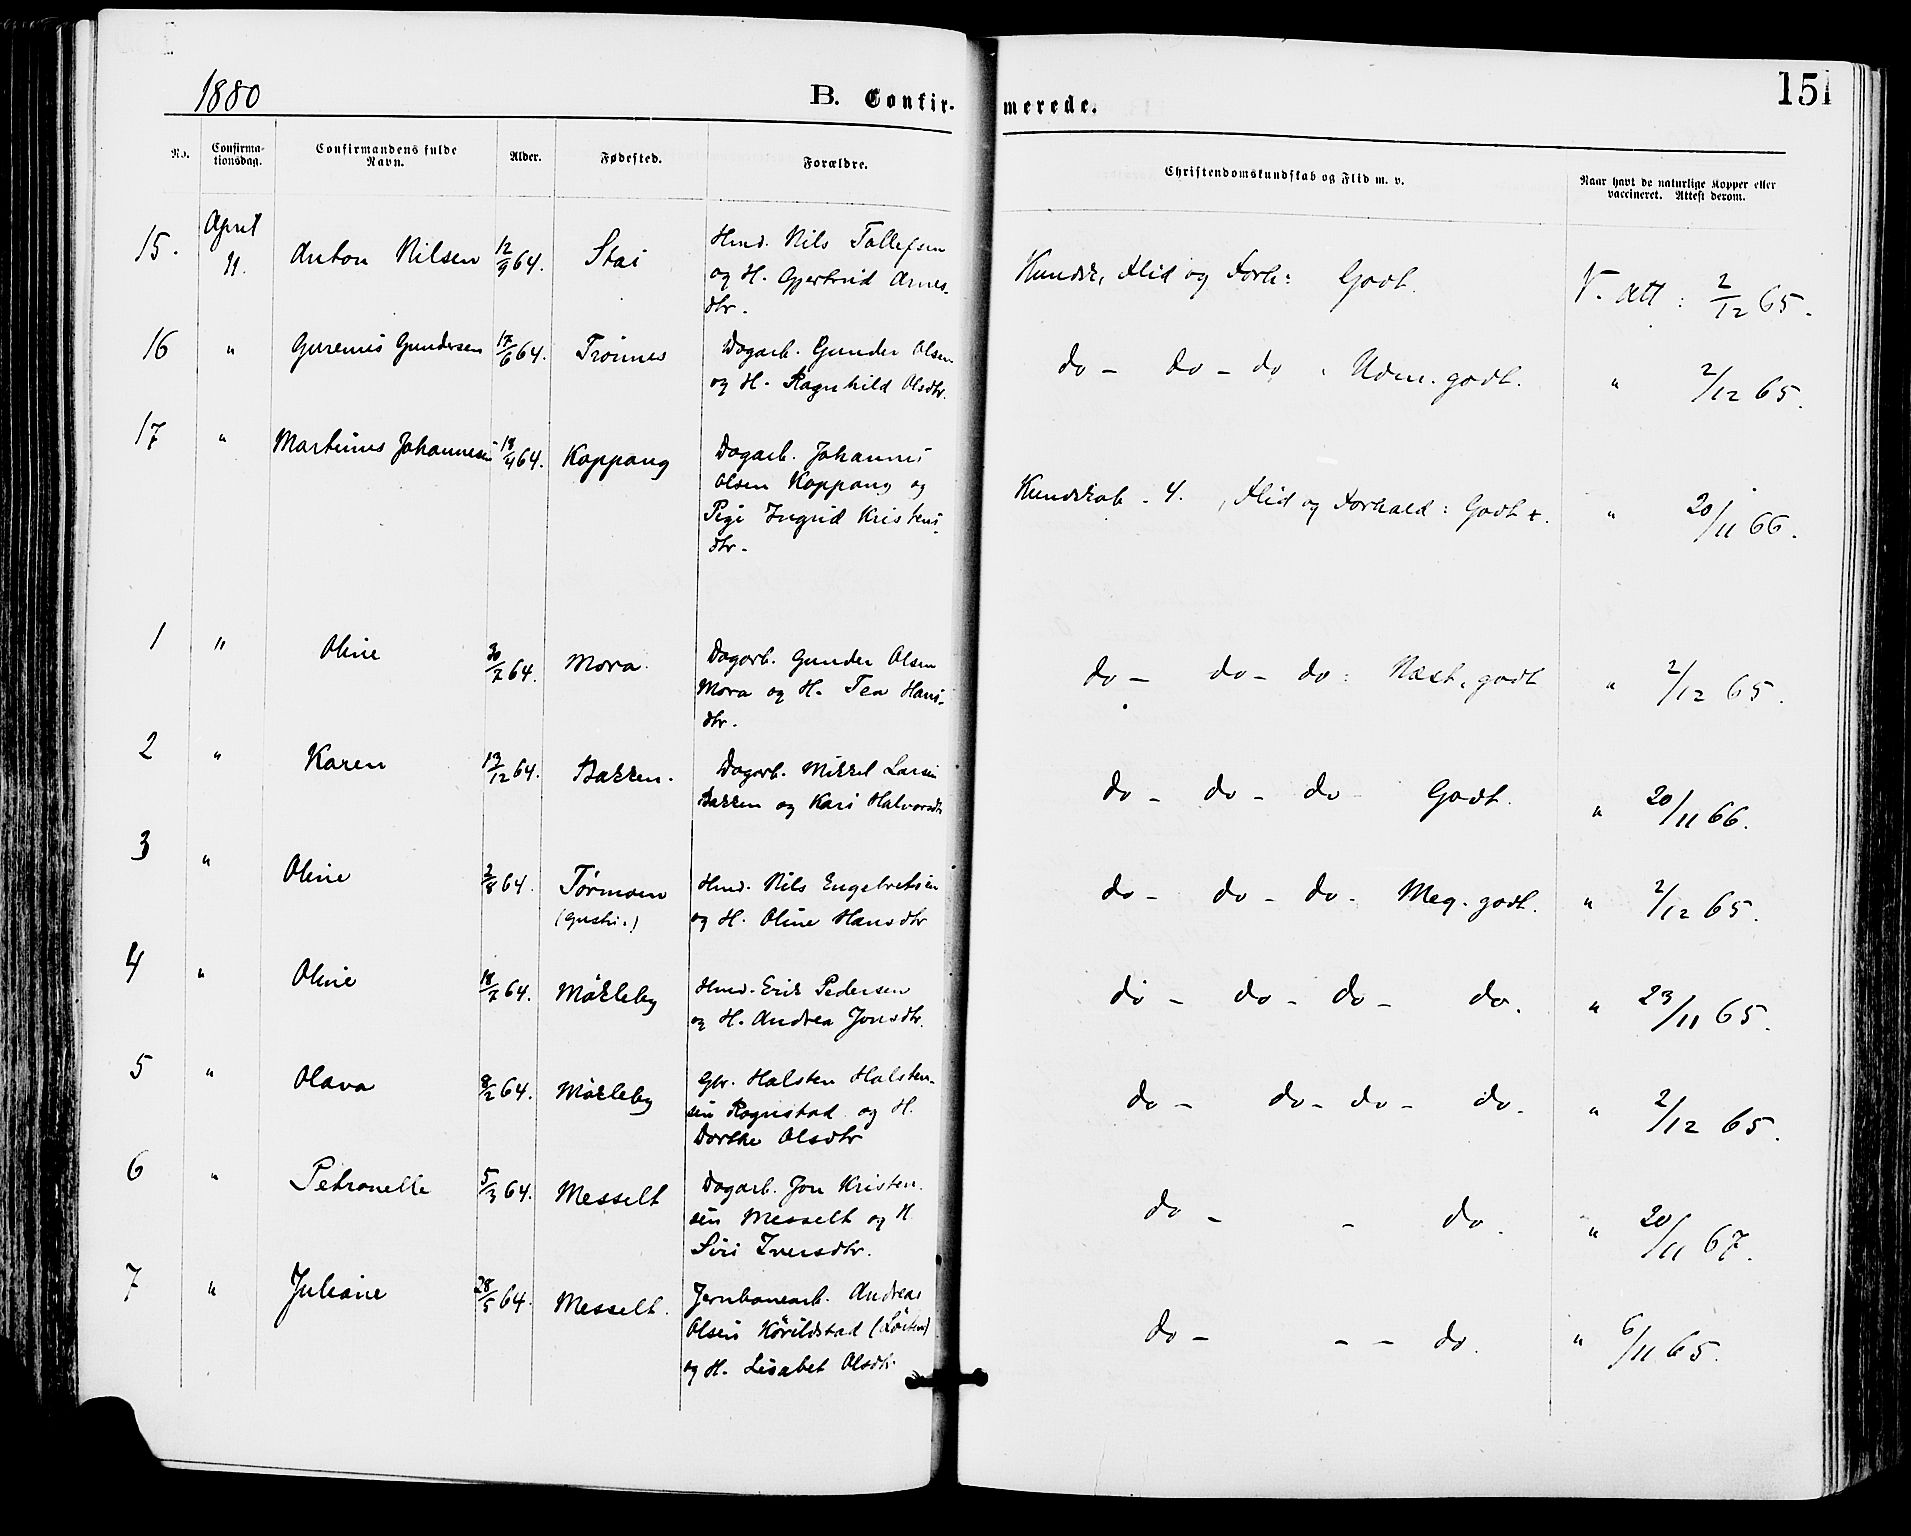 1880
B. Confir-
merede.
151
No.
Confirma-
tionsdag.
Confirmandens fulde
Navn.
Alder.
Fødested.
Forældre.
Christendomskundskab og Flid m. v.
Naar havt de naturlige Kopper eller
vaccineret. Attest derom.
15. April 11. Anton Nilsen 12/9 64. Stai
Hmd. Nils Tollefsen
og H. Gjertrud Arnes-
dtr.
Kundsk, Flid og Forh: Godt.
V. Att: 2/12 65.
16 " Gurenius Gundersen 17/6 64. Trønnes
Dagarb. Gunder Olsen
og H. Ragnhild Olsdtr.
do - do - do . Udm. godt.
" 2/12 65.
17 " Martinus Johannesen 18/4 64. Koppang
Dagarb. Johannes
Olsen Koppang og
Pige Ingrid Kristens-
dtr.
Kundskab - 4. , Flid og Forhold: Godt +.
" 20/11 66.
1 " Oline 30/7 64. Mora.
Dagarb. Gunder Olsen
Mora og H. Tea Hans-
dtr.
do - do - do: Næst. godt
" 2/12 65.
2 " Karen 13/12 64. Bakken.
Dagarb. Mikkel Larsen
Bakken og Kari Halvorsdtr
do - do - do - Godt.
" 20/11 66.
3 " Oline 2/8 64. Tørmoen
Hmd. Nils Engebretsen
og H. Oline Hansdtr
do - do - do - Meg. godt.
" 2/12 65.
4 " Oline 18/7 64. Mökleby
Hmd. Erik Pedersen
og H. Andrea Jonsdtr.
do - do - do - do.
" 23/11 65.
5 " Olava 8/2 64. Mökleby
Gbr. Halsten Halsten-
sen Rognstad og H.
Dorthe Olsdtr
do - do - do - do.
" 2/12 65.
6 " Petronelle 5/3 64. Messelt
Dagarb. Jon Kristen-
sen Messelt og H
Siri Iversdtr.
do - - do.
" 20/11 67.
7 " Juliane 28/5 64. Messelt.
Jernbanearb. Andreas
Olsen Körildstad (Löiten)
og H. Lisabet Olsdtr.
do - - - do.
" 6/11 65.